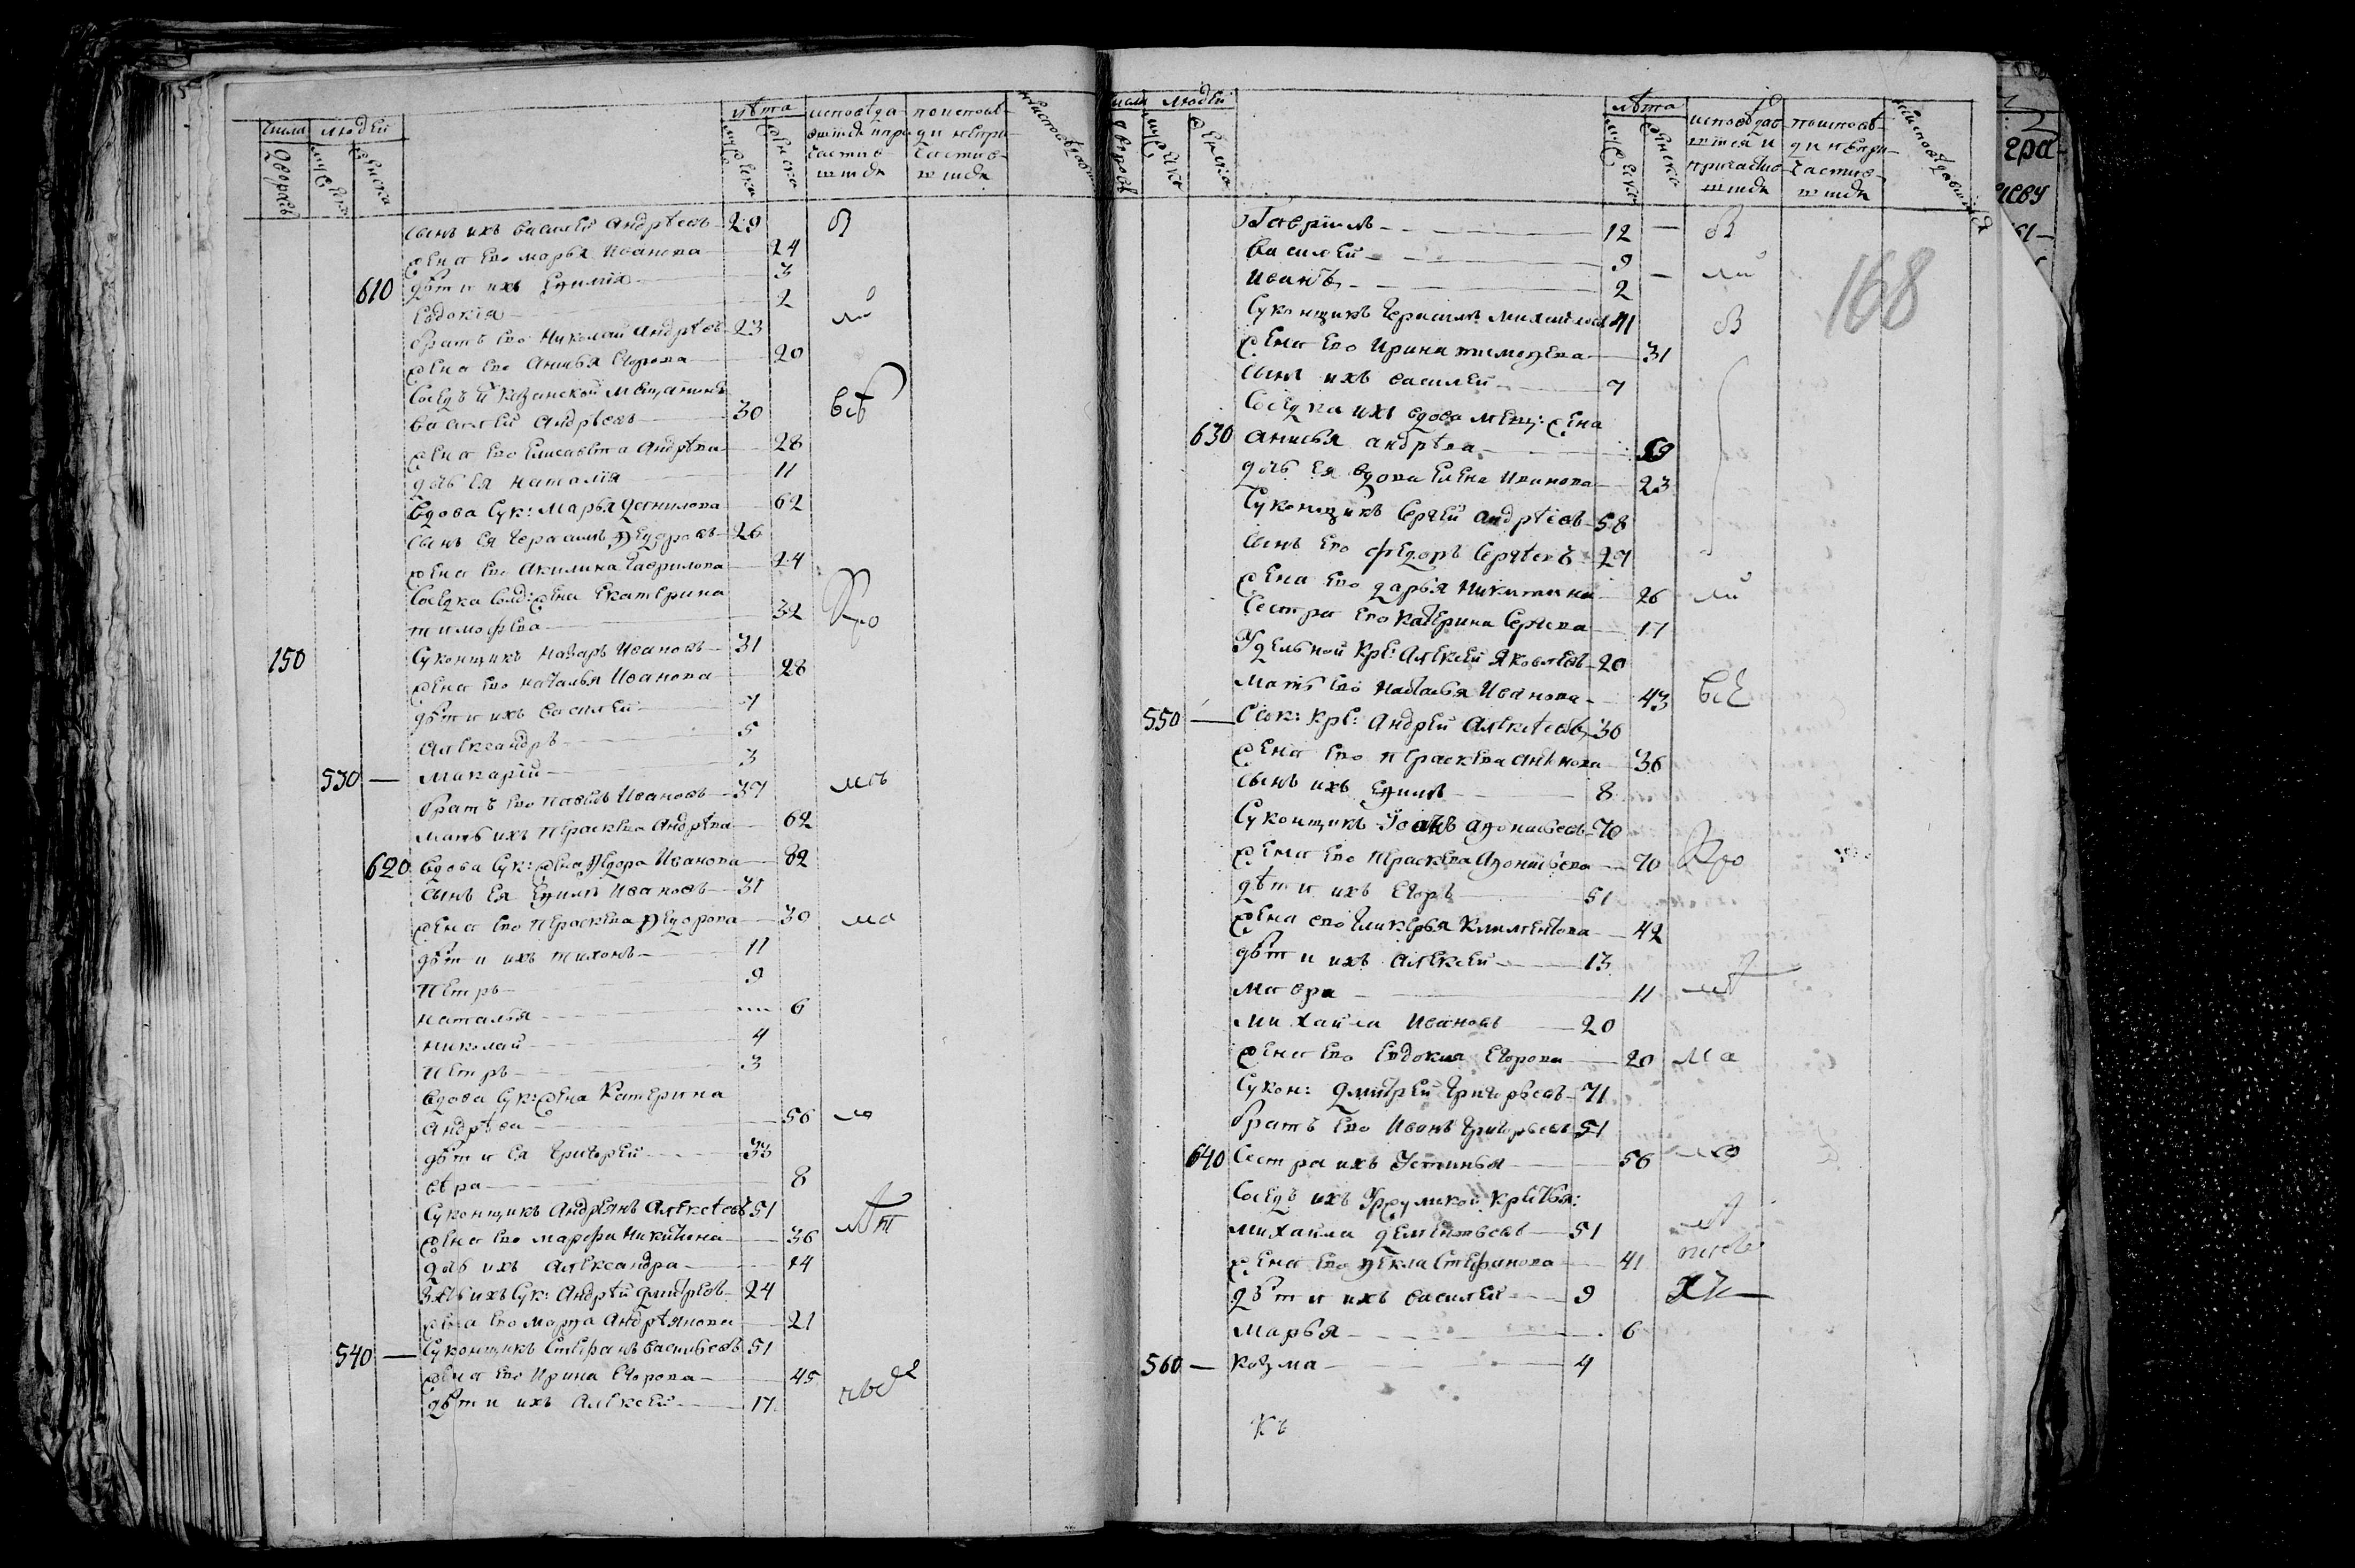 числа людей
дворовъ
мужеска
женска
лѣта
мужеска
женска
исповѣда
вшіися и при
частив
шіися
поисповѣ
ди непри
частив
шіися
сынъ ихъ василей Андрѣевъ 29
жена ево марья Иванова 24
610 дѣти ихъ Ефимія 3
Евдокія 2
братъ ево Николай Андрѣевъ 23
жена ево Анисья Егорова 20
сосѣдъ их казанской мещанинъ
василей Андрѣевъ 30 всѣ
жена ево Елисавета Андрѣева 28
дочь ея наталія 11
вдова сук: марья данилова 62
сынъ ея Герасимъ Ѳедоровъ 26
жена ево Акилина Гаврилова 24
сосѣдка солд: жена Екатерина
тимофеева 32
150 суконщикъ назаръ Ивановъ 31
жена ево наталья Иванова 28
дѣти ихъ василей 7
Александръ 5
530 макарій 3
братъ ево павелъ Ивановъ 37
мать ихъ прасковья Андрѣева 62
620 вдова сук: жена Ѳедора Иванова 82
сынъ ея Ефимъ Ивановъ 31
жена ево прасковья Ѳедорова 30 ма
дѣти ихъ тихонъ 11
петръ 9
наталья 6
николай 4
петръ 3
вдова сук: жена Катерина
Андрѣева 56
дѣти ея Григорей 33
вѣра 8
суконщикъ Андреянъ Алексѣевъ 51
жена ево марфа Никитина 36
дочь ихъ Александра 14
зять ихъ сук: Андрѣй дмитріевъ 24
жена ево марѳа Андрѣянова 21
540 суконщикъ Стефанъ васильевъ 51
жена ево Ирина Егорова 45
дѣти ихъ Алексей 17
числа людей
дворовъ
мужеска
женска
лѣта
мужеска
женска
исповѣдав
шіися и
причастив
шіися
поисповѣ
ди непри
частив
шіися
168
Гавріилъ 12
василей 9
иванъ 2
суконщикъ Герасимъ михайловъ 41
жена ево Ирина тимофеева 31
сынъ ихъ василей 7
сосѣдка ихъ вдова мещ: жена
630 анисья андрѣева 59
дочь ея вдова Елена Иванова 23
суконщикъ Сергей андрѣевъ 58
сынъ ево Федоръ Сергѣевъ 27
жена ево дарья никитина 26
сестра ево катерина Сергеева 17
Удельной кре: Алексей Яковлевъ 20
мать ево наталья Иванова 43 всѣ
550 Андрей Алексѣевъ 36
жена ево прасковья 36
сынъ ихъ Ефимъ 8
суконщикъ Іоанъ Афонасьевъ 70
жена ево прасковья Афонасьева 70
дѣти ихъ Егоръ 51
жена ево Гликерья Климентова 42
дѣти ихъ Алексей 13
мавра 11
михайла Ивановъ 20
жена ево Евдокия Егорова 20 ма
сукон: дмитрей Григорьевъ 71
братъ ево Иванъ Григорьевъ 51
640 сестра ихъ Устинья 56
сосѣдъ ихъ Уржумской
михайла дементьевъ 51
жена ево Ѳекла Стефанова 41
дѣти ихъ василей 9
марья 6
560 козма 4
къ
гра-